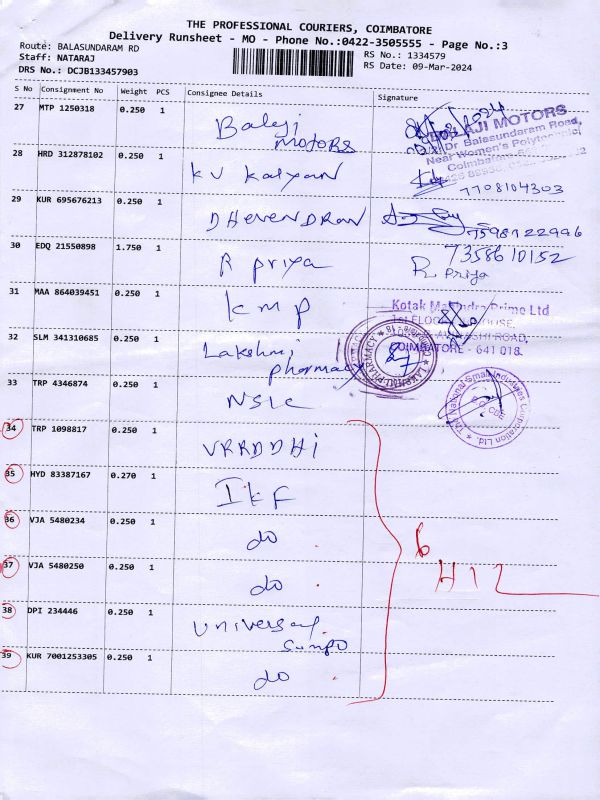 THE PROFESSIONAL COURIERS, COIMBATORE
Delivery Runsheet - MO - Phone No.:0422-3505555 - Page No.:3
Route: BALASUNDARAM RD
RS No.: 1334579
Staff: NATARAJ
RS Date: 09-Mar-2024
DRS No.: DCJB133457903
S No Consignment No Weight PCS Consignee Details Signature
27 MTP 1250318 0.250 1 Balaji Motors
BALAJI MOTORS
Dr Balasundaram Road,
Near Women's Polytechnic,
Coimbatore
28 HRD 312878102 0.250 1 KV Kalyan
7708104303
29 KUR 695676213 0.250 1 DHEVENDRAN
7598722996
30 EDQ 21550898 1.750 1 R Priya
7358610152
R Priya
31 MAA 864039451 0.250 1 KMP
Kotak Mahindra Prime Ltd
COIMBATORE - 641 018.
32 SLM 341310685 0.250 1 Lakshmi pharmacy
LAKSHMI PHARMACY
33 TRP 4346874 0.250 1 NSIC
The National Small Industries Corporation Ltd.
34 TRP 1098817 0.250 1 VRRDDHI
35 HYD 83387167 0.270 1 IKF
36 VJA 5480234 0.250 1 do
37 VJA 5480250 0.250 1 do
6
38 DPI 234446 0.250 1 Universal Sompo
39 KUR 7001253305 0.250 1 do